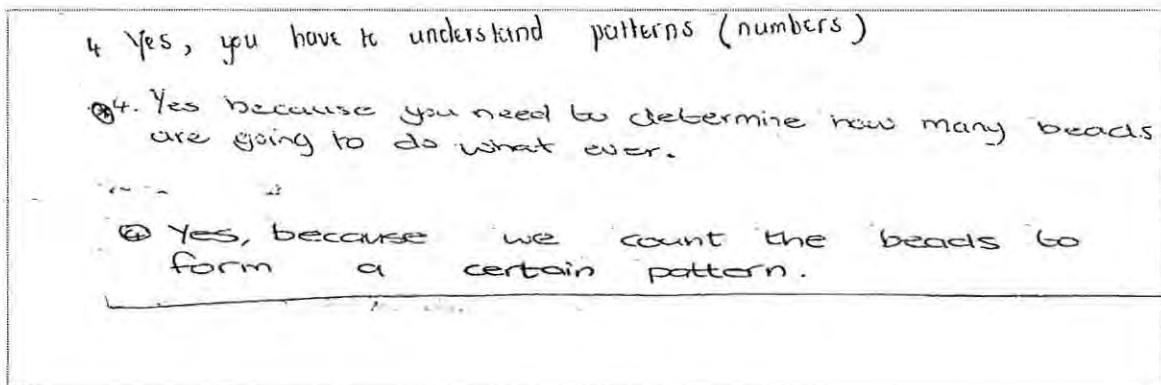 4 Yes, you have to understand patterns (numbers)
4. Yes because you need to determine how many beads
are going to do what ever.
④ Yes, because we count the beads to
form a certain pattern.